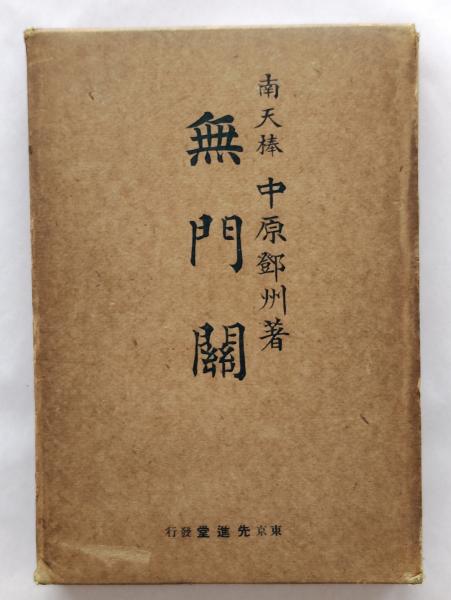 南天棒 中原鄧州著
無門關
東京 先進堂 發行